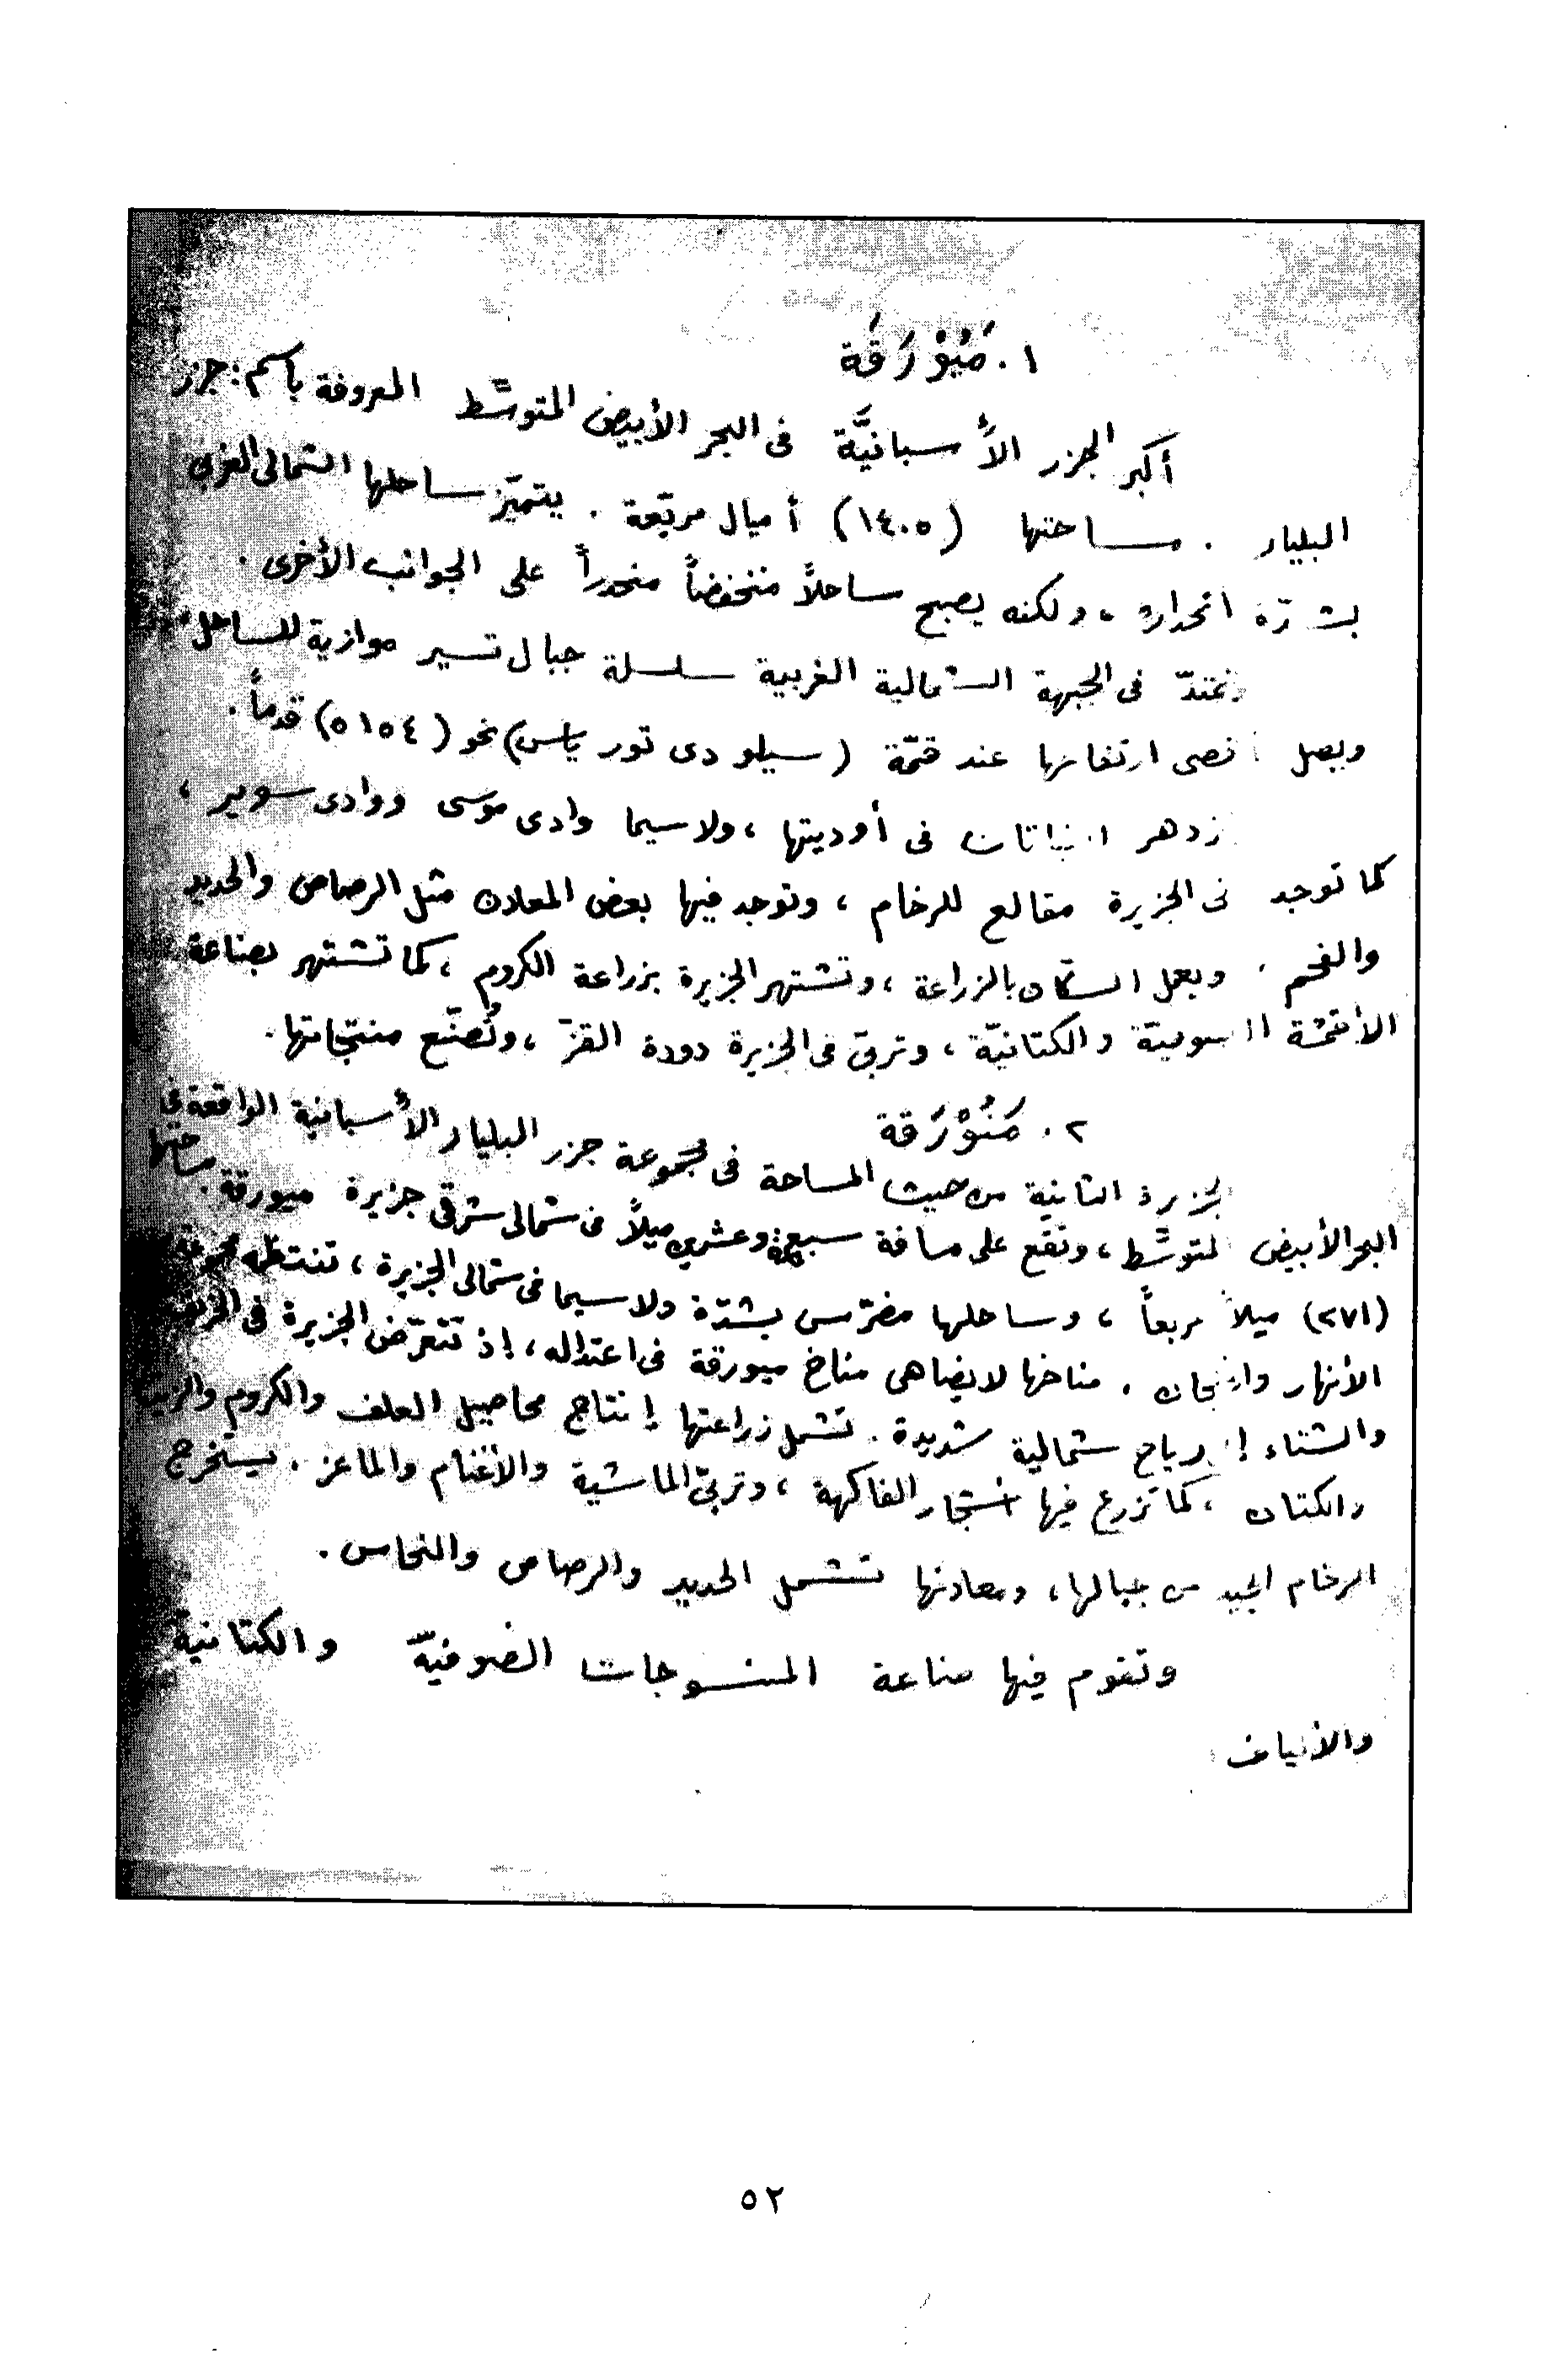 ١. مَيُوْرَقَة
أكبر الجزر الأسبانيَّة في البحر الأبيض المتوسّط المعروفة باسم: جزر
البليار. مساحتها (١٤٠٥) أميال مربّعة. يتميّز ساحلها الشمالي الغربي
بشدّة انحداره، ولكنه يصبح ساحلاً منخفضاً منحدراً على الجوانب الأخرى.
وتمتدّ في الجبهة الشمالية الغربية سلسلة جبال تسير موازية للساحل
ويصل أقصى ارتفاعها عند قمّة (سيلو دي تور ياس) نحو (٥١٥٤) قدماً.
تزدهر النباتات في أوديتها، ولاسيما وادي موسى ووادي سوير،
كما توجد في الجزيرة مقالع للرخام، وتوجد فيها بعض المعادن مثل الرصاص والحديد
والفحم. ويعمل السكان بالزراعة، وتشتهر الجزيرة بزراعة الكروم، كما تشتهر بصناعة
الأقمشة الصوفيّة والكتانيّة، وتربّى في الجزيرة دودة القزّ، وتُصنّع منتجاتها.
٢. مَنُوْرَقة
الجزيرة الثانية من حيث المساحة في مجموعة جزر البليار الأسبانية الواقعة في
البحر الأبيض المتوسّط، وتقع على مسافة سبعة وعشرين ميلاً في شمالي شرقي جزيرة ميورقة. مساحتها
(٢٧١) ميلاً مربعاً، وساحلها مضرّس بشدّة ولاسيما في شمالي الجزيرة، تنتظمه مجموعة
الأنهار والخلجان. مناخها لا يضاهي مناخ ميورقة في اعتداله، إذ تتعرّض الجزيرة في الخريف
والشتاء إلى رياح شمالية شديدة. تشمل زراعتها إنتاج محاصيل العلف والكروم والزيت
والكتان، كما تزرع فيها أشجار الفاكهة، وتربّى الماشية والأغنام والماعز. يستخرج
الرخام الجيد من جبالها، ومعادنها تشمل الحديد والرصاص والنحاس.
وتقوم فيها صناعة المنسوجات الصوفيّة والكتانية
والألياف
٥٢